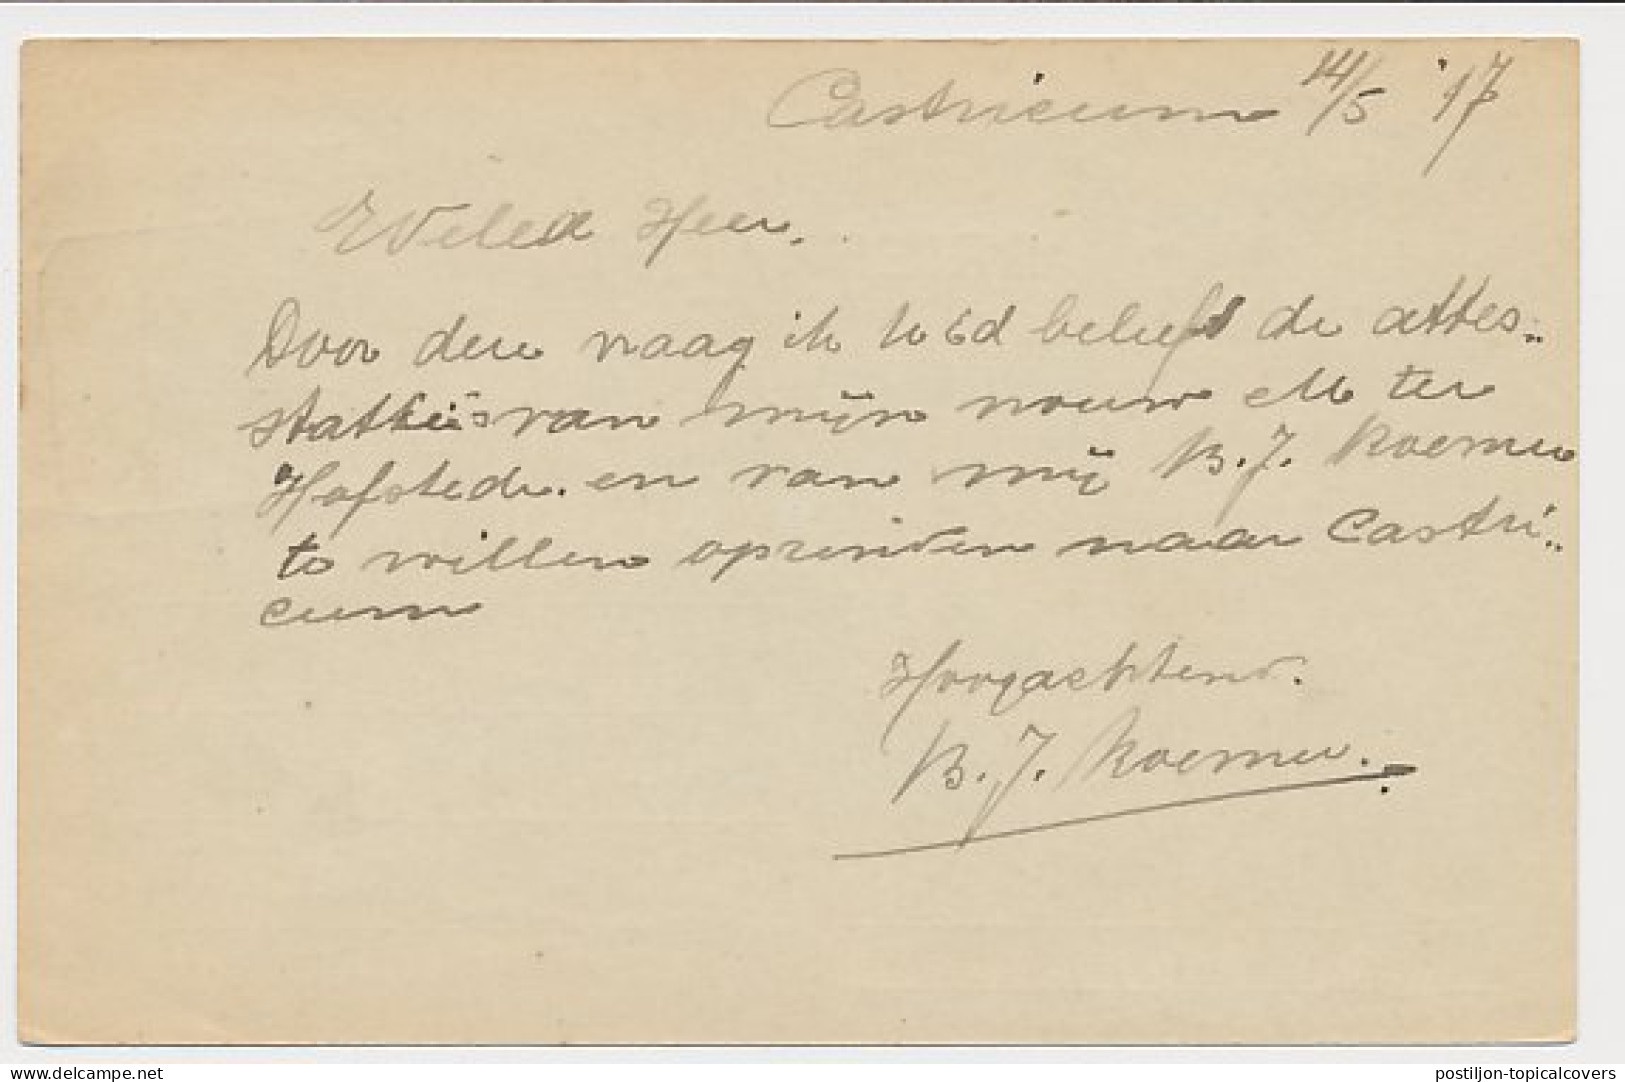 Castricum 14/5 '17
WelEd Heer,
Door deze vraag ik U Ed beleefd de attes..
van mijn vrouw M ter
Hofstede. en van mij B. J. Roemer
te willen opzenden naar Castri..
cum
Hoogachtend.
B. J. Roemer.
delcampe.net
postiljon-topicalcovers